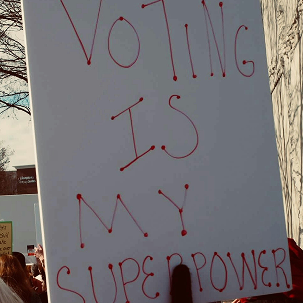 VOTING
IS
MY
SUPERPOWER